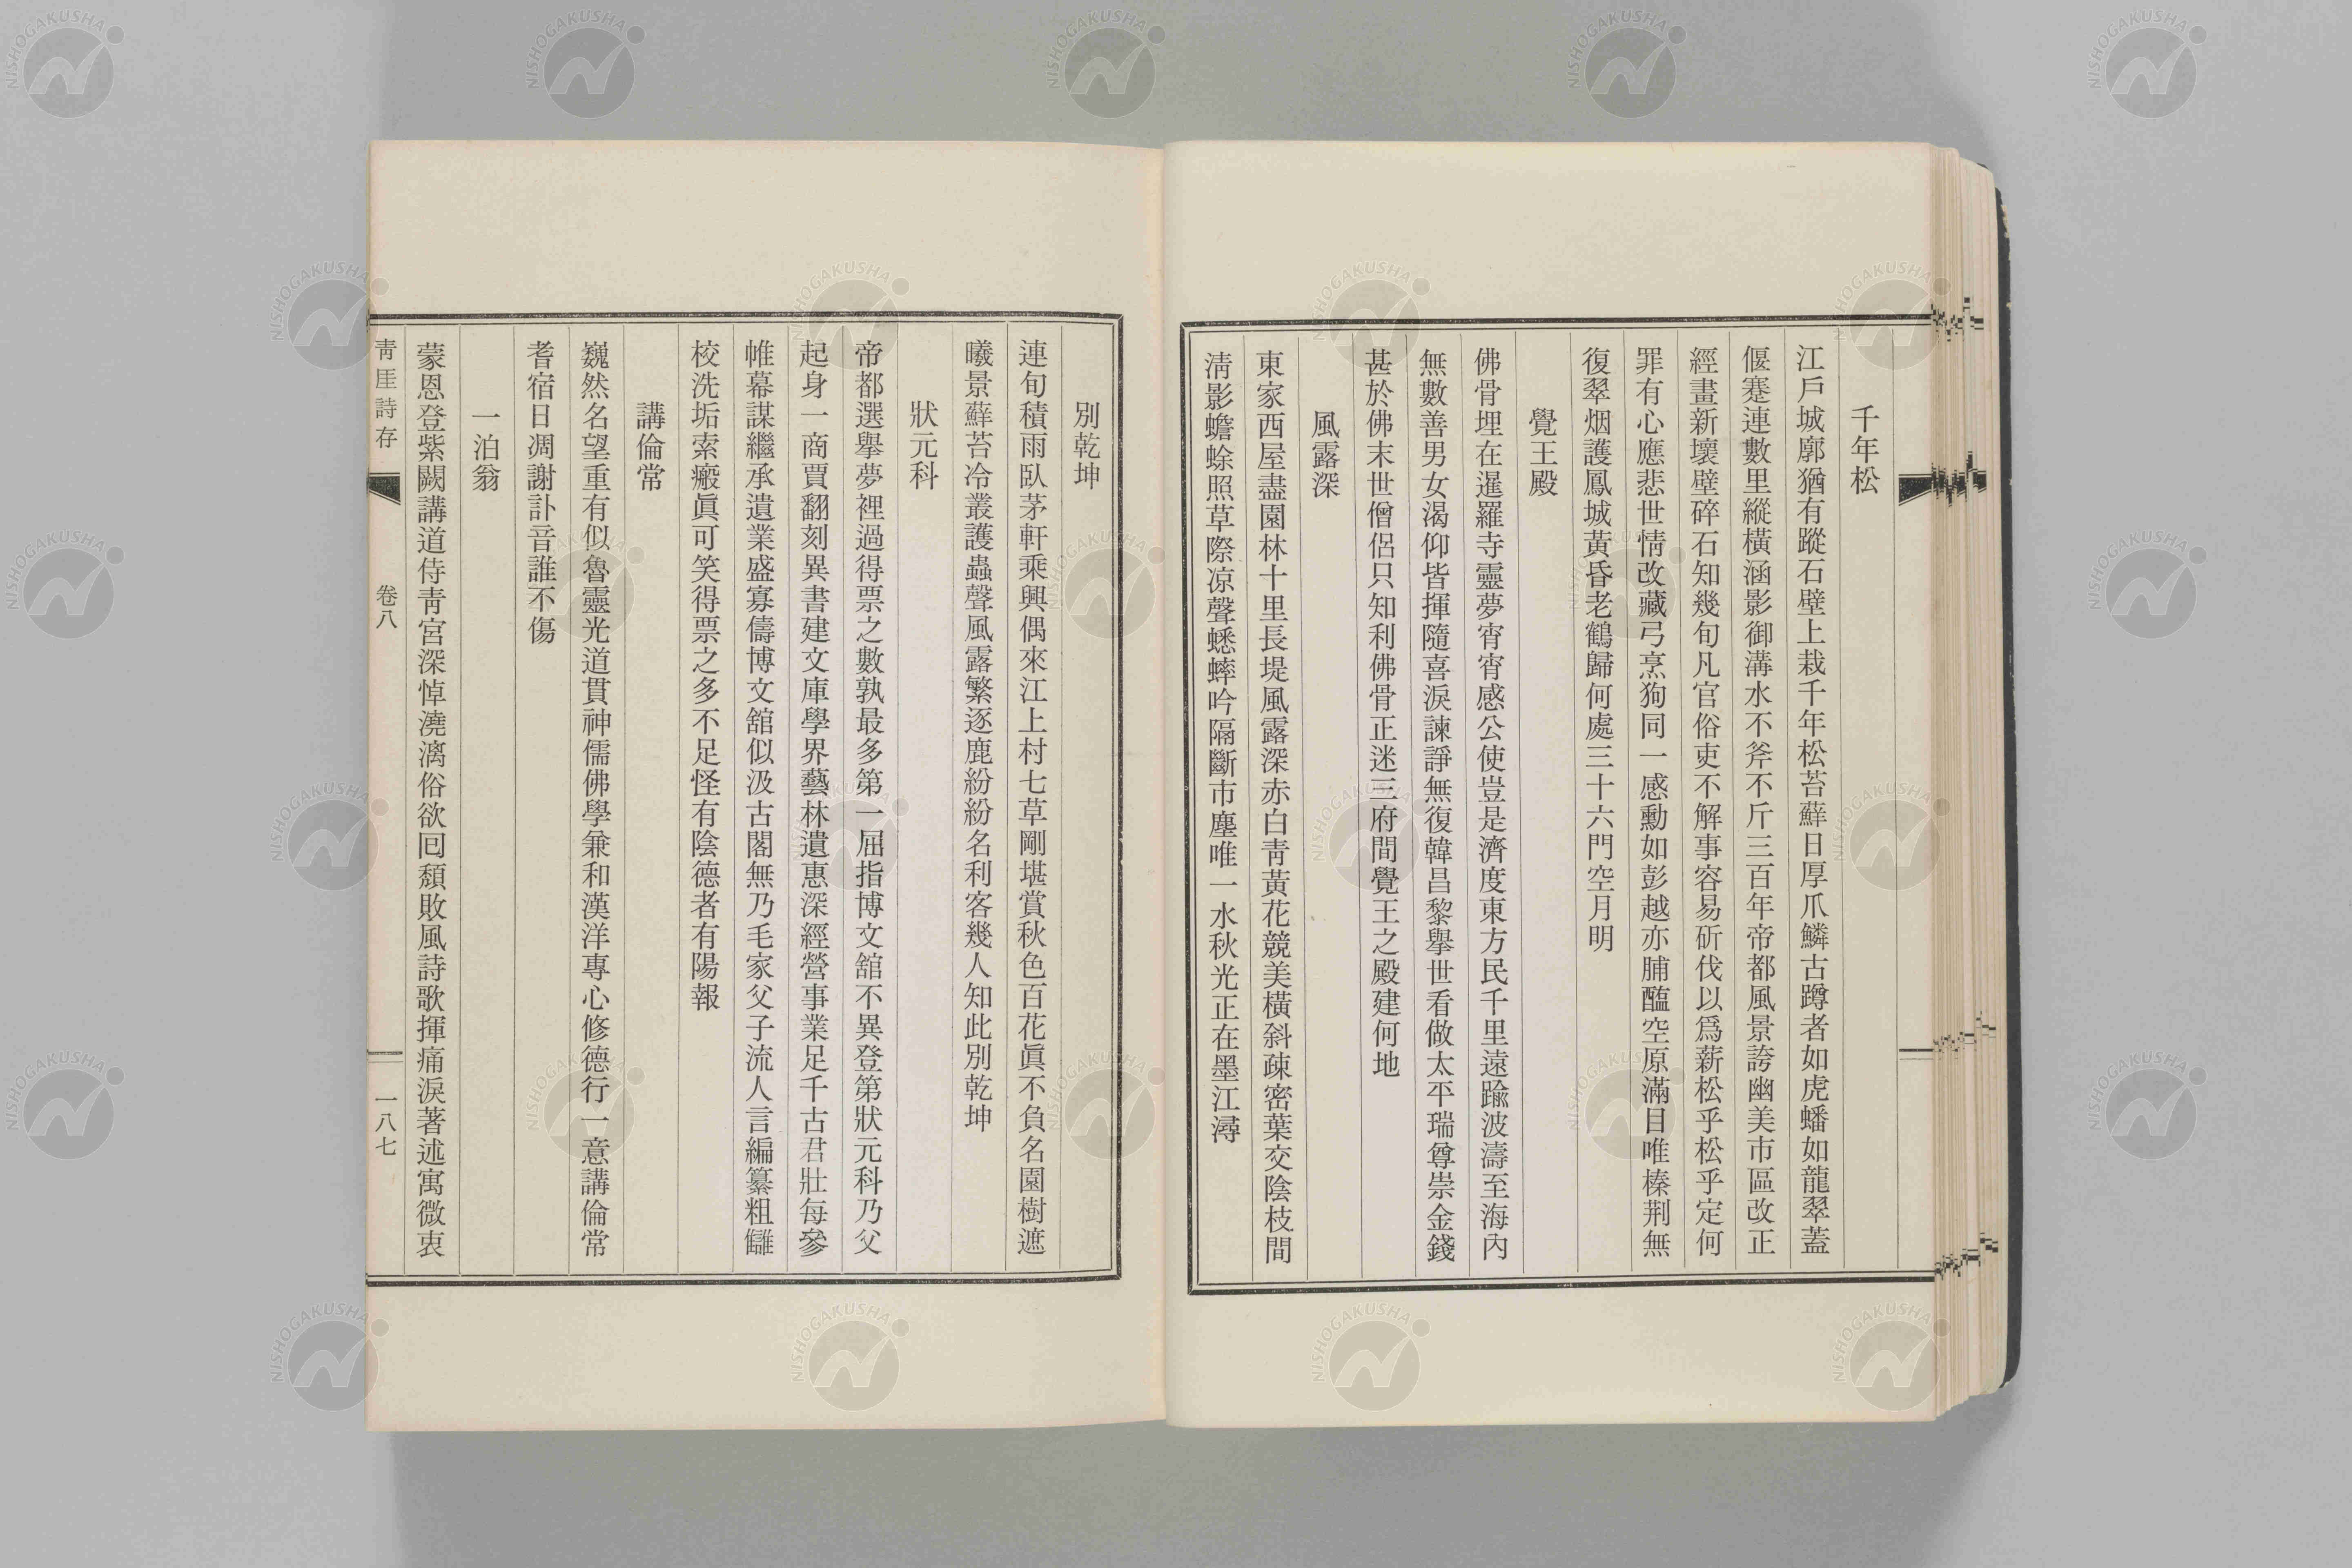 千年松
江戶城廓猶有蹤石壁上栽千年松苔蘚日厚爪鱗古蹲者如虎蟠如龍翠蓋
偃蹇連數里縱橫涵影御溝水不斧不斤三百年帝都風景誇幽美市區改正
經畫新壞壁碎石知幾旬凡官俗吏不解事容易斫伐以爲薪松乎松乎定何
罪有心應悲世情改藏弓烹狗同一感勳如彭越亦脯醢空原滿目唯榛荆無
復翠烟護鳳城黃昏老鶴歸何處三十六門空月明
覺王殿
佛骨埋在暹羅寺靈夢宵宵感公使豈是濟度東方民千里遠踰波濤至海內
無數善男女渴仰皆揮隨喜淚諫諍無復韓昌黎擧世看做太平瑞尊崇金錢
甚於佛末世僧侶只知利佛骨正迷三府間覺王之殿建何地
風露深
東家西屋盡園林十里長堤風露深赤白靑黃花競美橫斜疎密葉交陰枝間
淸影蟾蜍照草際凉聲蟋蟀吟隔斷市塵唯一水秋光正在墨江潯
別乾坤
連旬積雨臥茅軒乘興偶來江上村七草剛堪賞秋色百花眞不負名園樹遮
曦景蘚苔冷叢護蟲聲風露繁逐鹿紛紛名利客幾人知此別乾坤
狀元科
帝都選擧夢裡過得票之數孰最多第一屈指博文舘不異登第狀元科乃父
起身一商賈翻刻異書建文庫學界藝林遺惠深經營事業足千古君壯每參
帷幕謀繼承遺業盛寡儔博文舘似汲古閣無乃毛家父子流人言編纂粗讎
校洗垢索瘢眞可笑得票之多不足怪有陰德者有陽報
講倫常
巍然名望重有似魯靈光道貫神儒佛學兼和漢洋專心修德行一意講倫常
耆宿日凋謝訃音誰不傷
一泊翁
蒙恩登紫闕講道侍靑宮深悼澆漓俗欲回頹敗風詩歌揮痛淚著述寓微衷
靑厓詩存 卷八 一八七
NISHOGAKUSHA